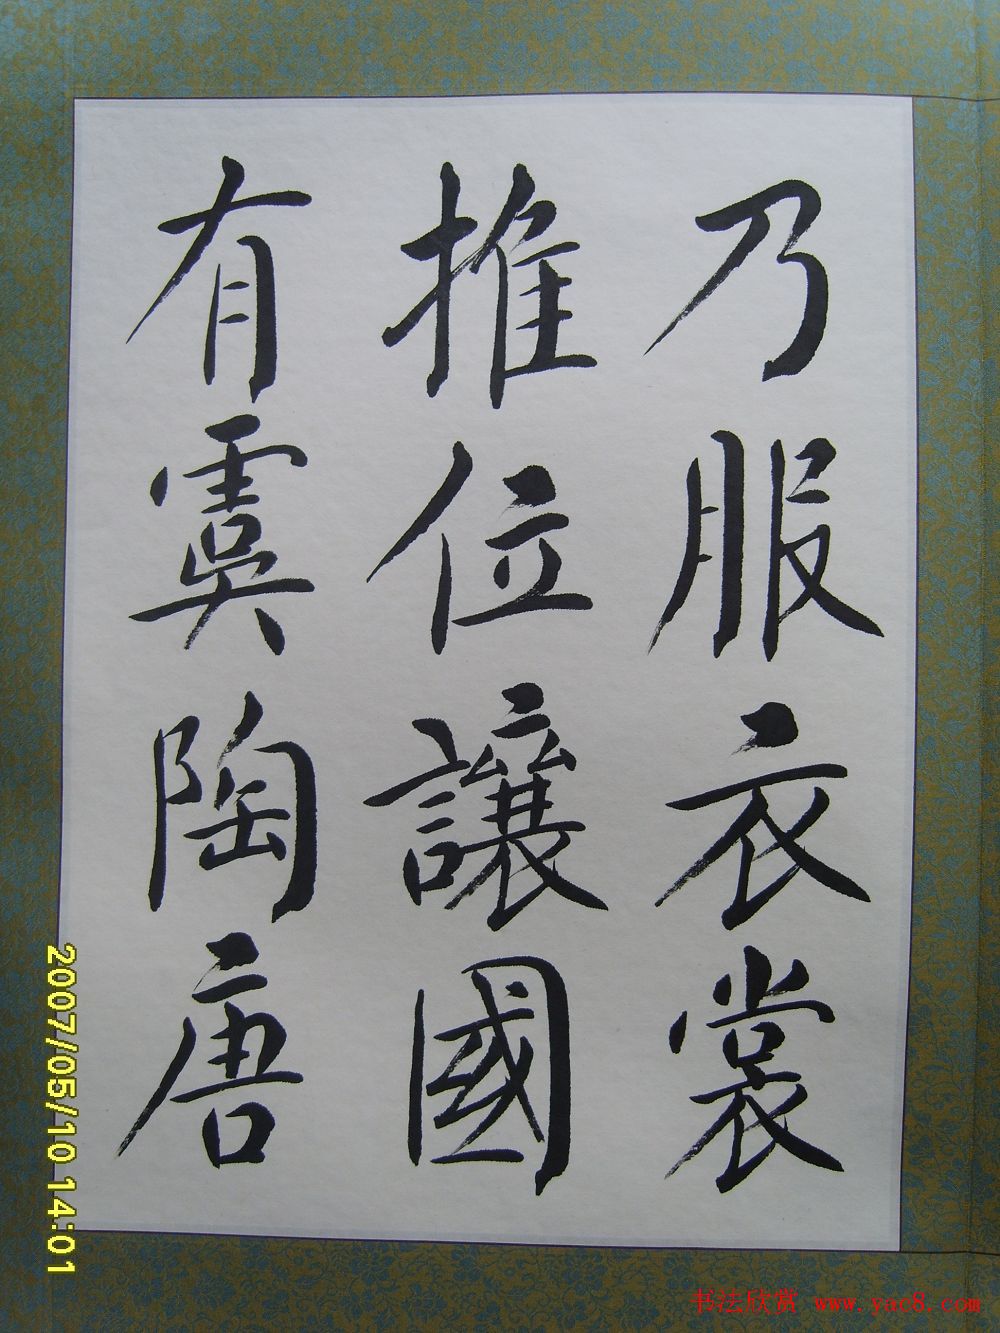 乃服衣裳
推位讓國
有虞陶唐
2007/05/10 14:01
书法欣赏 www.yac8.com